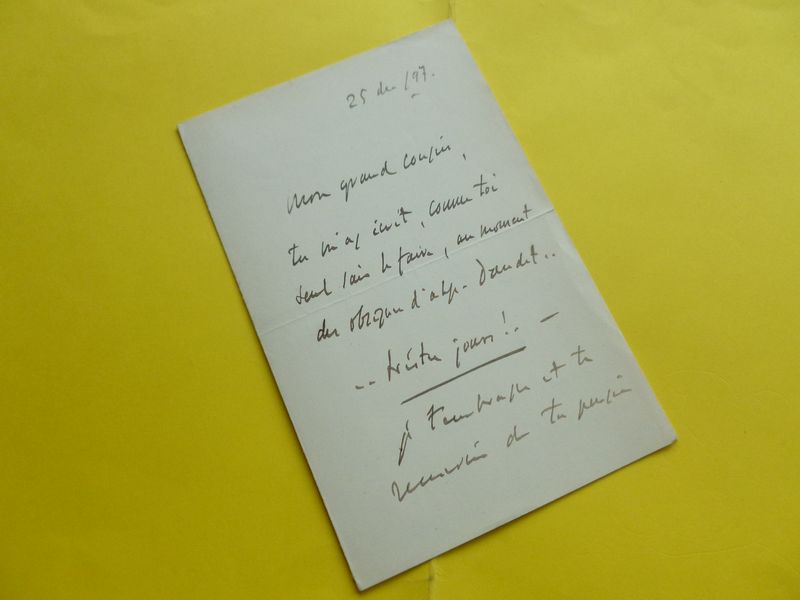 25 dec /97.
Mon grand cousin,
tu m'as écrit, comme toi
seul sais le faire, au moment
des obsèques d'Alph. Daudet..
.. tristes jours!.. —
je t'embrasse et te
remercie de ta pensée